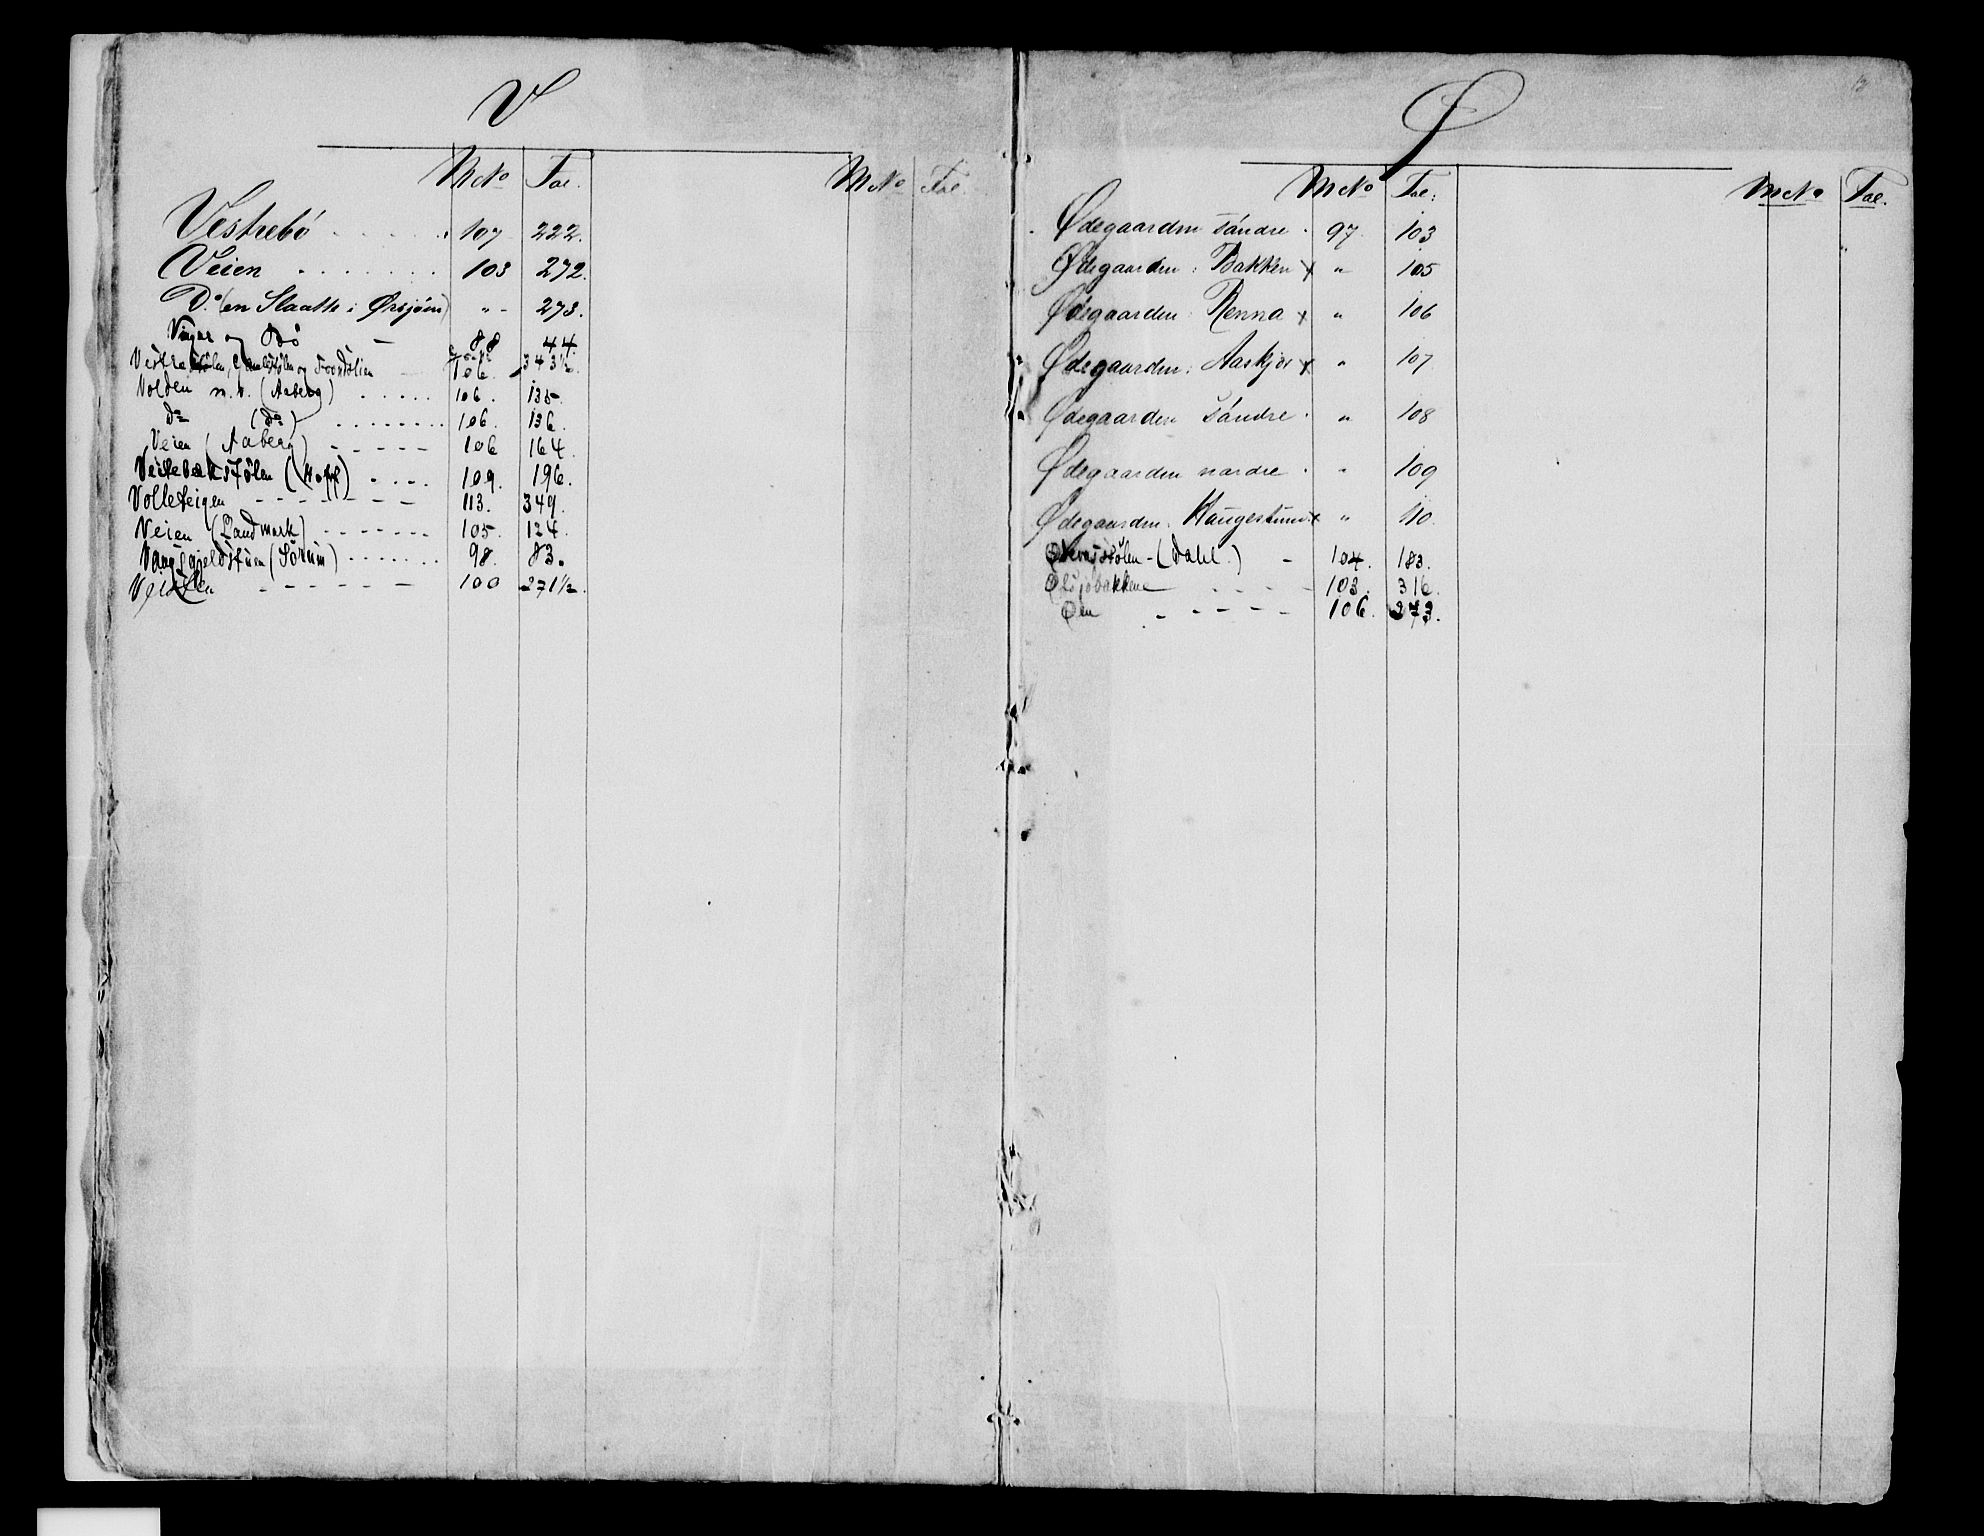 V
M No Fol. M No Fol.
Vestrebö . . . . . 107 222.
Veien . . . . . . . 103 272.
Do (en Slaatte i Örsjöen) " - 273.
Viger og Bö - 88 44.
Vestre 106. 343½.
Volden m. v. (Aaberg) . . . . . 106. 135.
do (do) . . . . . . . . 106. 136.
Veien (Aaberg) - - - - - 106 164.
Veslebækstølen (Hoff) . . . . 109. 196.
Volleteigen - - - - - - - 113. 349.
Veien (Landmark) - - - - - - 105. 124.
Vangsgjeldstuen (Sörum) . . . . . . 98. 83.
Vølen - - - - - 100 271½.
Ø
12
M No Fol. M No Fol.
Ødegaarden sándre . 97. 103
Ødegaarden : Bakken x " 105
Ødegaarden : Renna x " 106
Ødegaarden : Aaskjær x " 107
Ødegaarden sándre . " 108
Ødegaarden nordre . " 109
Ødegaarden : Haugestuen x " 110.
(Dahl.) - 104. 183.
Ølsjøbakkene - - - 103. 316.
Øen - - - - - 106. 273.